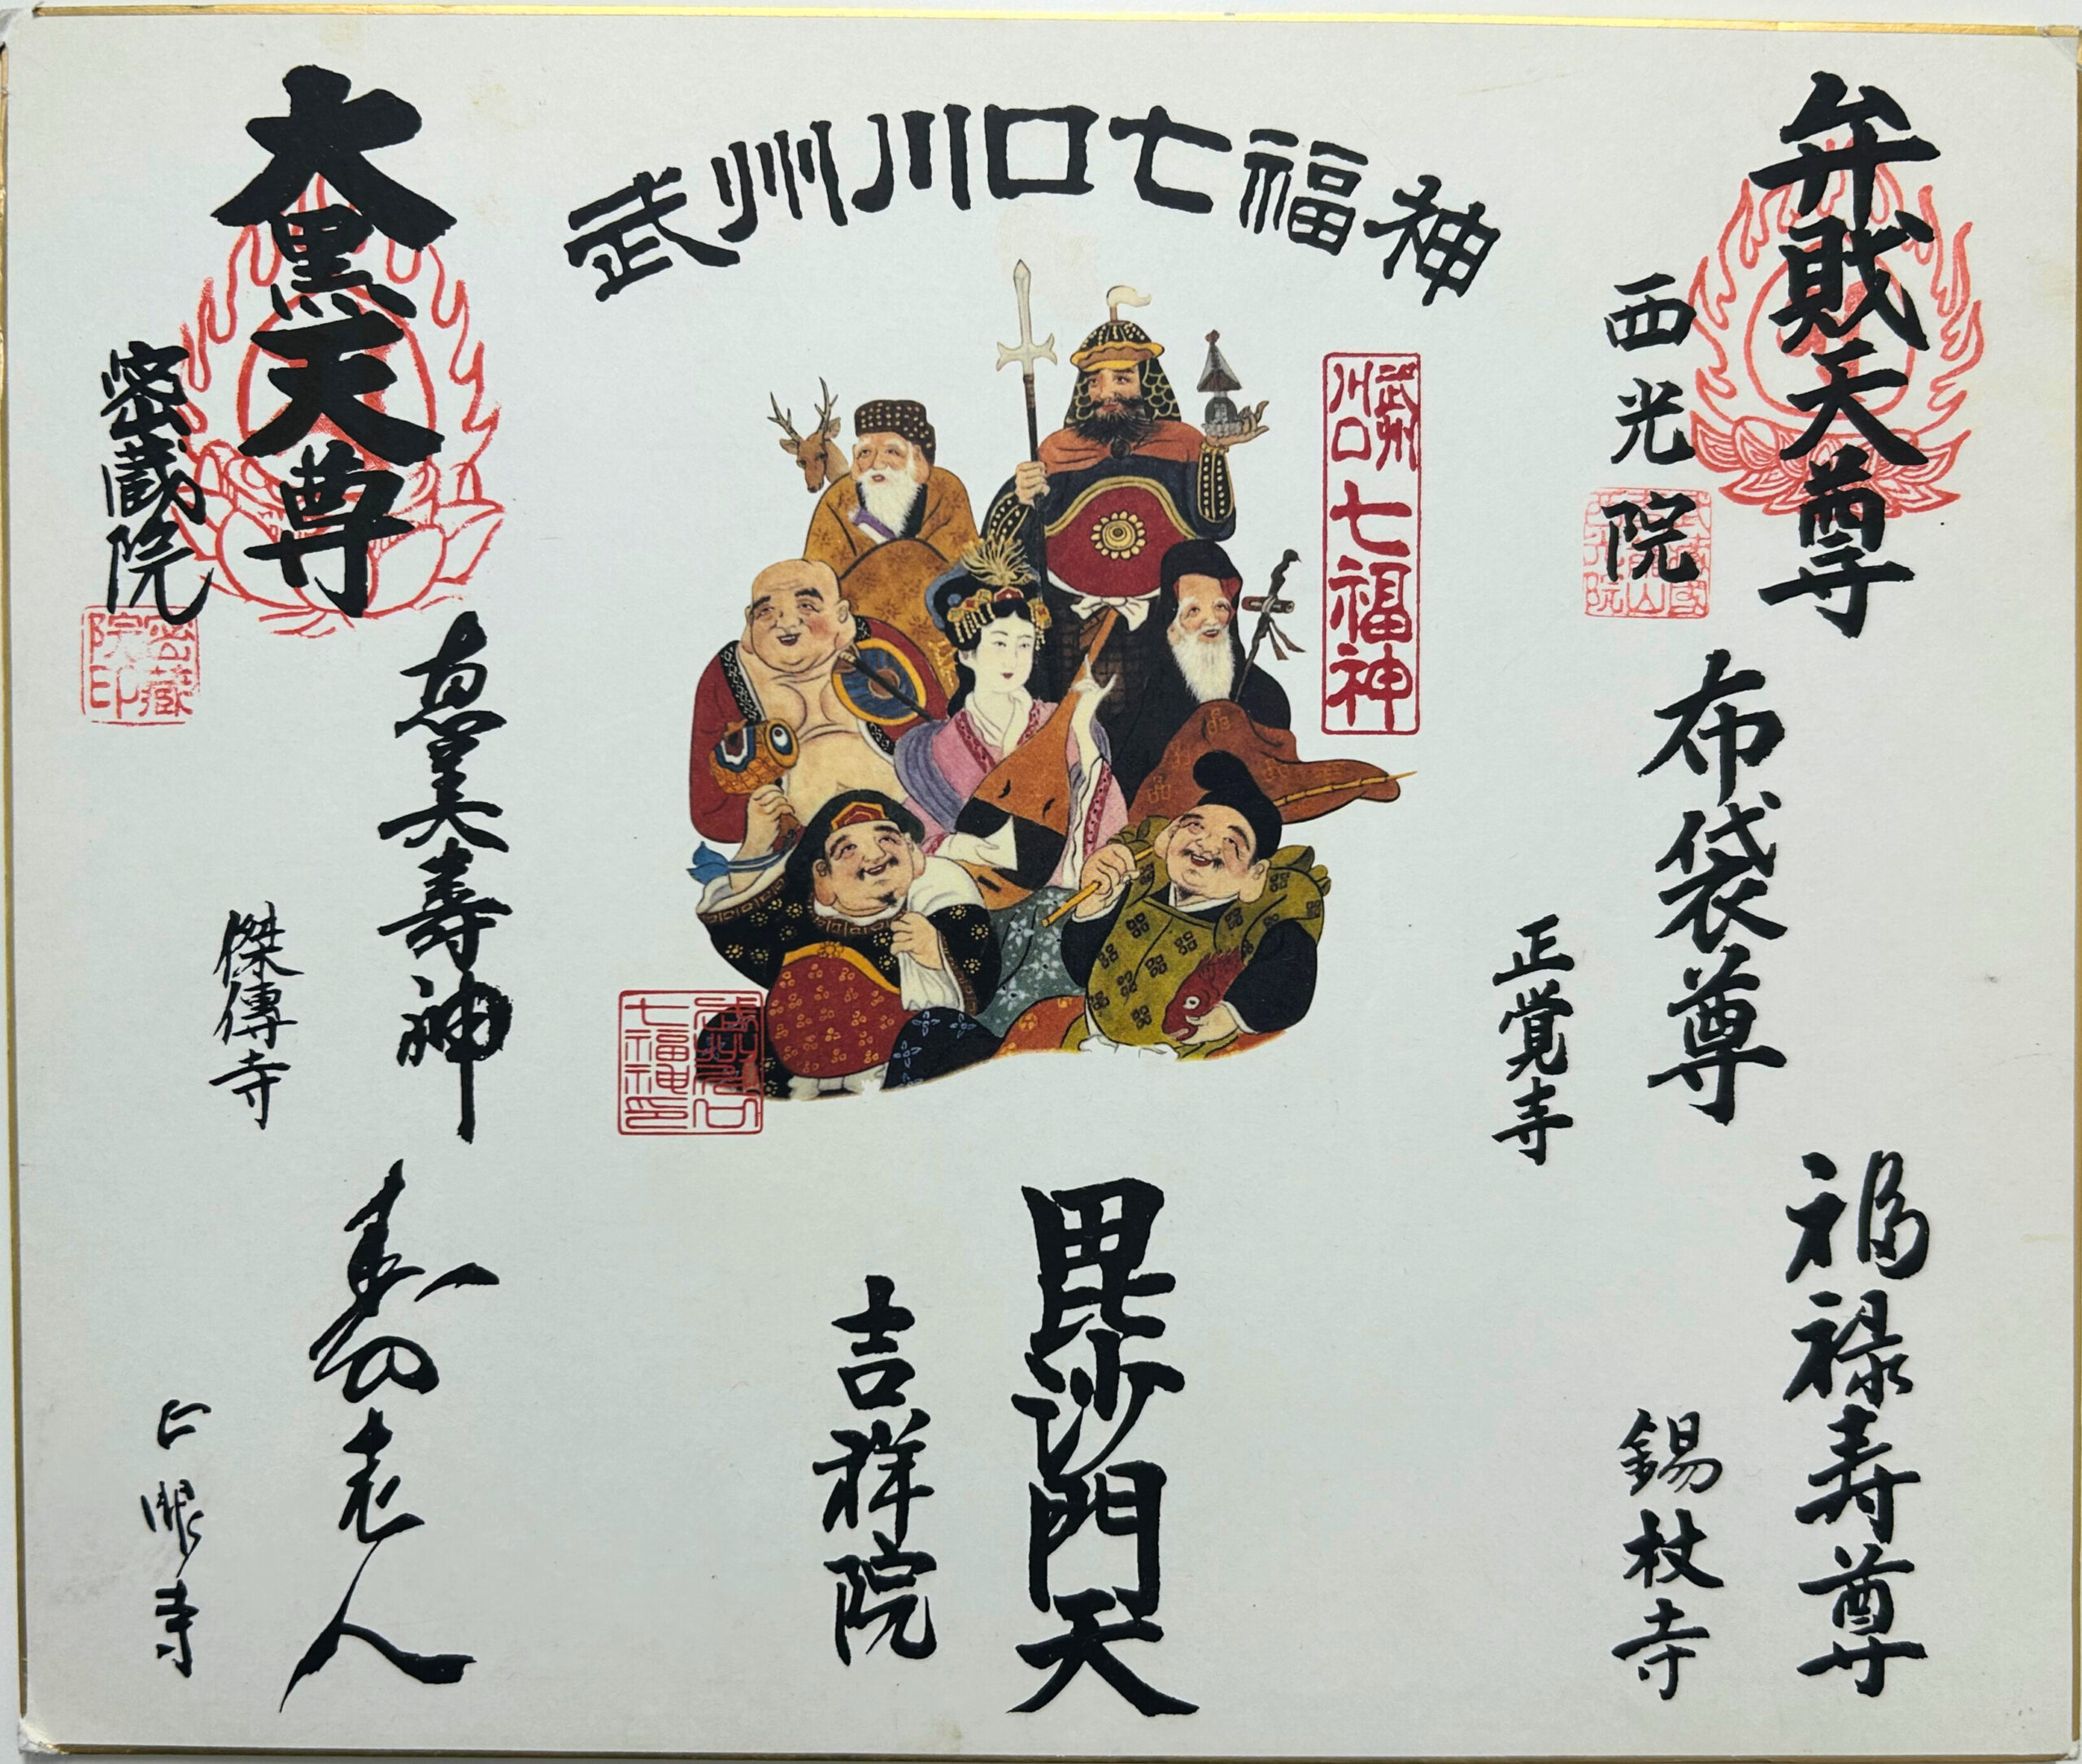 武州川口七福神
武州
川口
七福神
弁財天尊
西光院
布袋尊
正覚寺
福禄寿尊
錫杖寺
毘沙門天
吉祥院
大黒天尊
密蔵院
密蔵
院印
恵美寿神
傑傳寺
寿老人
正眼寺
武州川口
七福神印